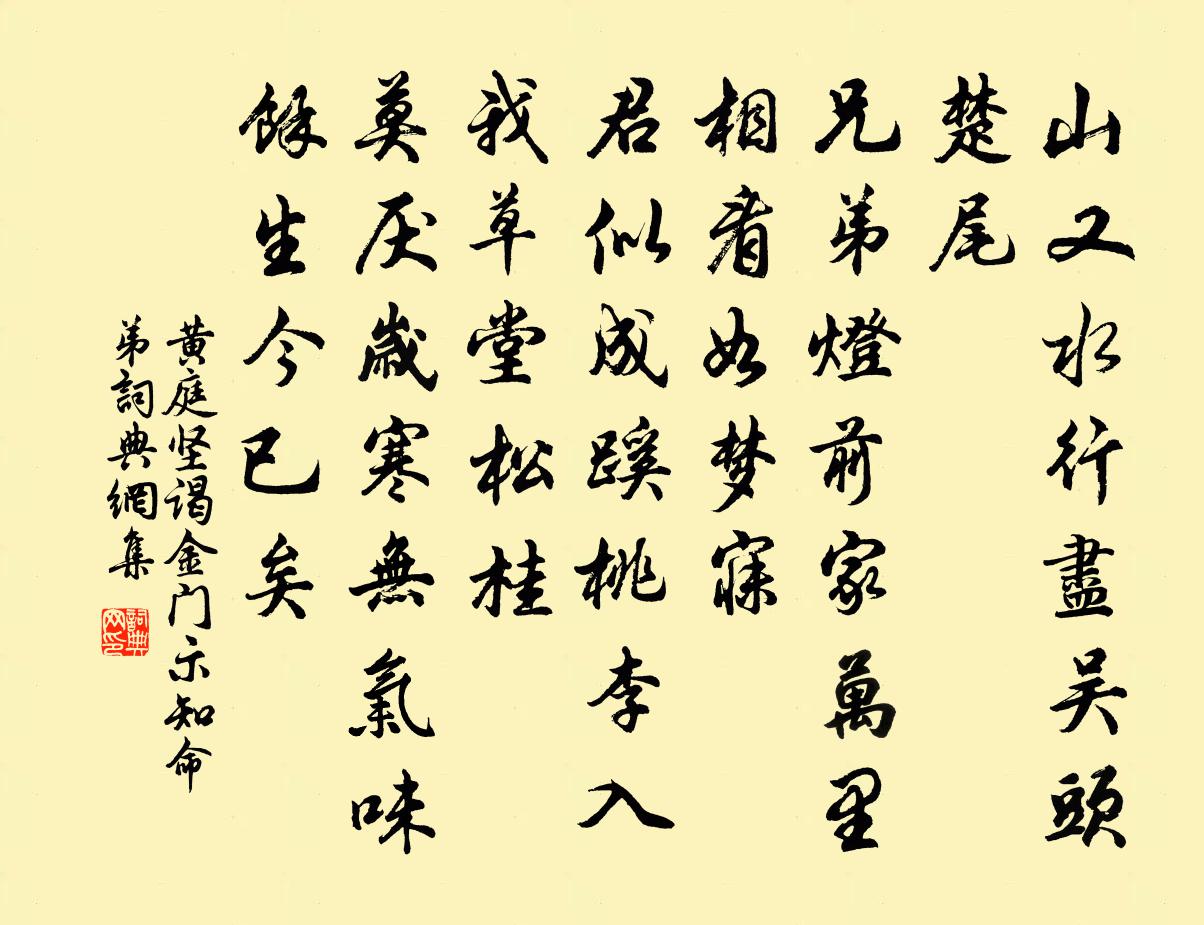 山又水行盡吴頭
楚尾
兄弟燈前家萬里
相看如梦寐
君似成蹊桃李入
我草堂松桂
莫厌歲寒無氣味
餘生今已矣
黄庭坚谒金门示知命
弟詞典網集
詞典网印